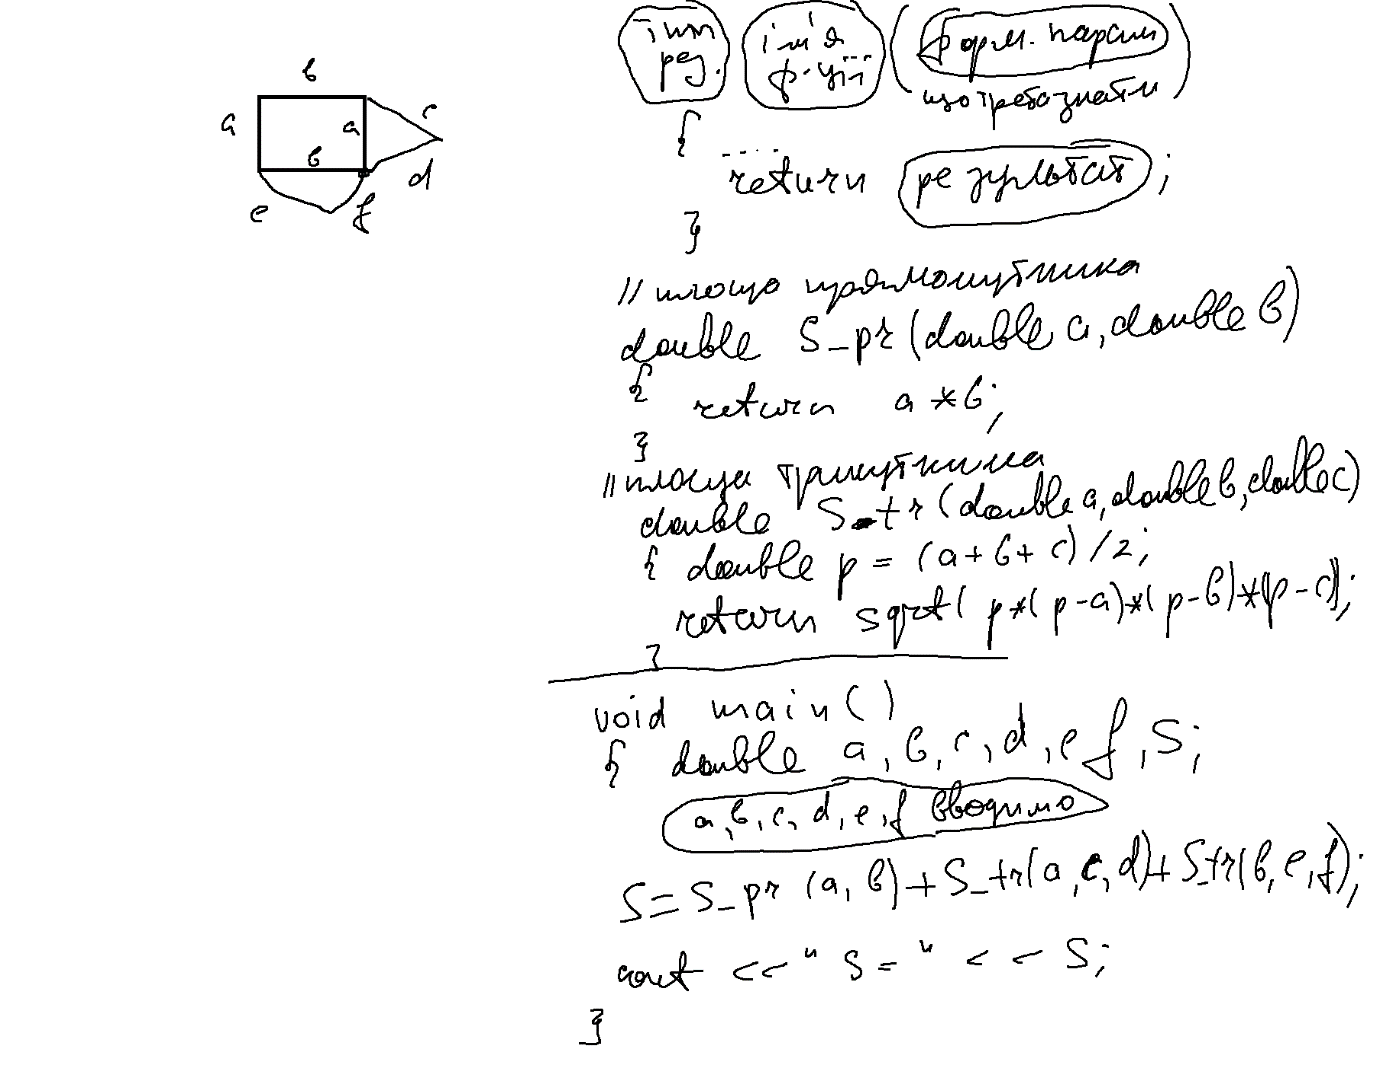 в
a
a
в
c
d
e
f
тип рез.
ім'я ф-ції
( форм. парам
що треба знати )
{
....
return результат ;
}
// площа прямокутника
double S_pr (double a, double b)
{
return a * b;
}
// площа трикутника
double S_tr (double a, double b, double c)
{ double p = (a + b + c) / 2;
return sqrt( p*( p-a)*( p-b)*(p-c));
}
void main ( )
{ double a, b, c, d, e f, S;
a, b, c, d, e, f вводимо
S = S_pr (a, b) + S_tr(a, c, d) + S_tr(b, e, f);
cout << "S=" << S;
}